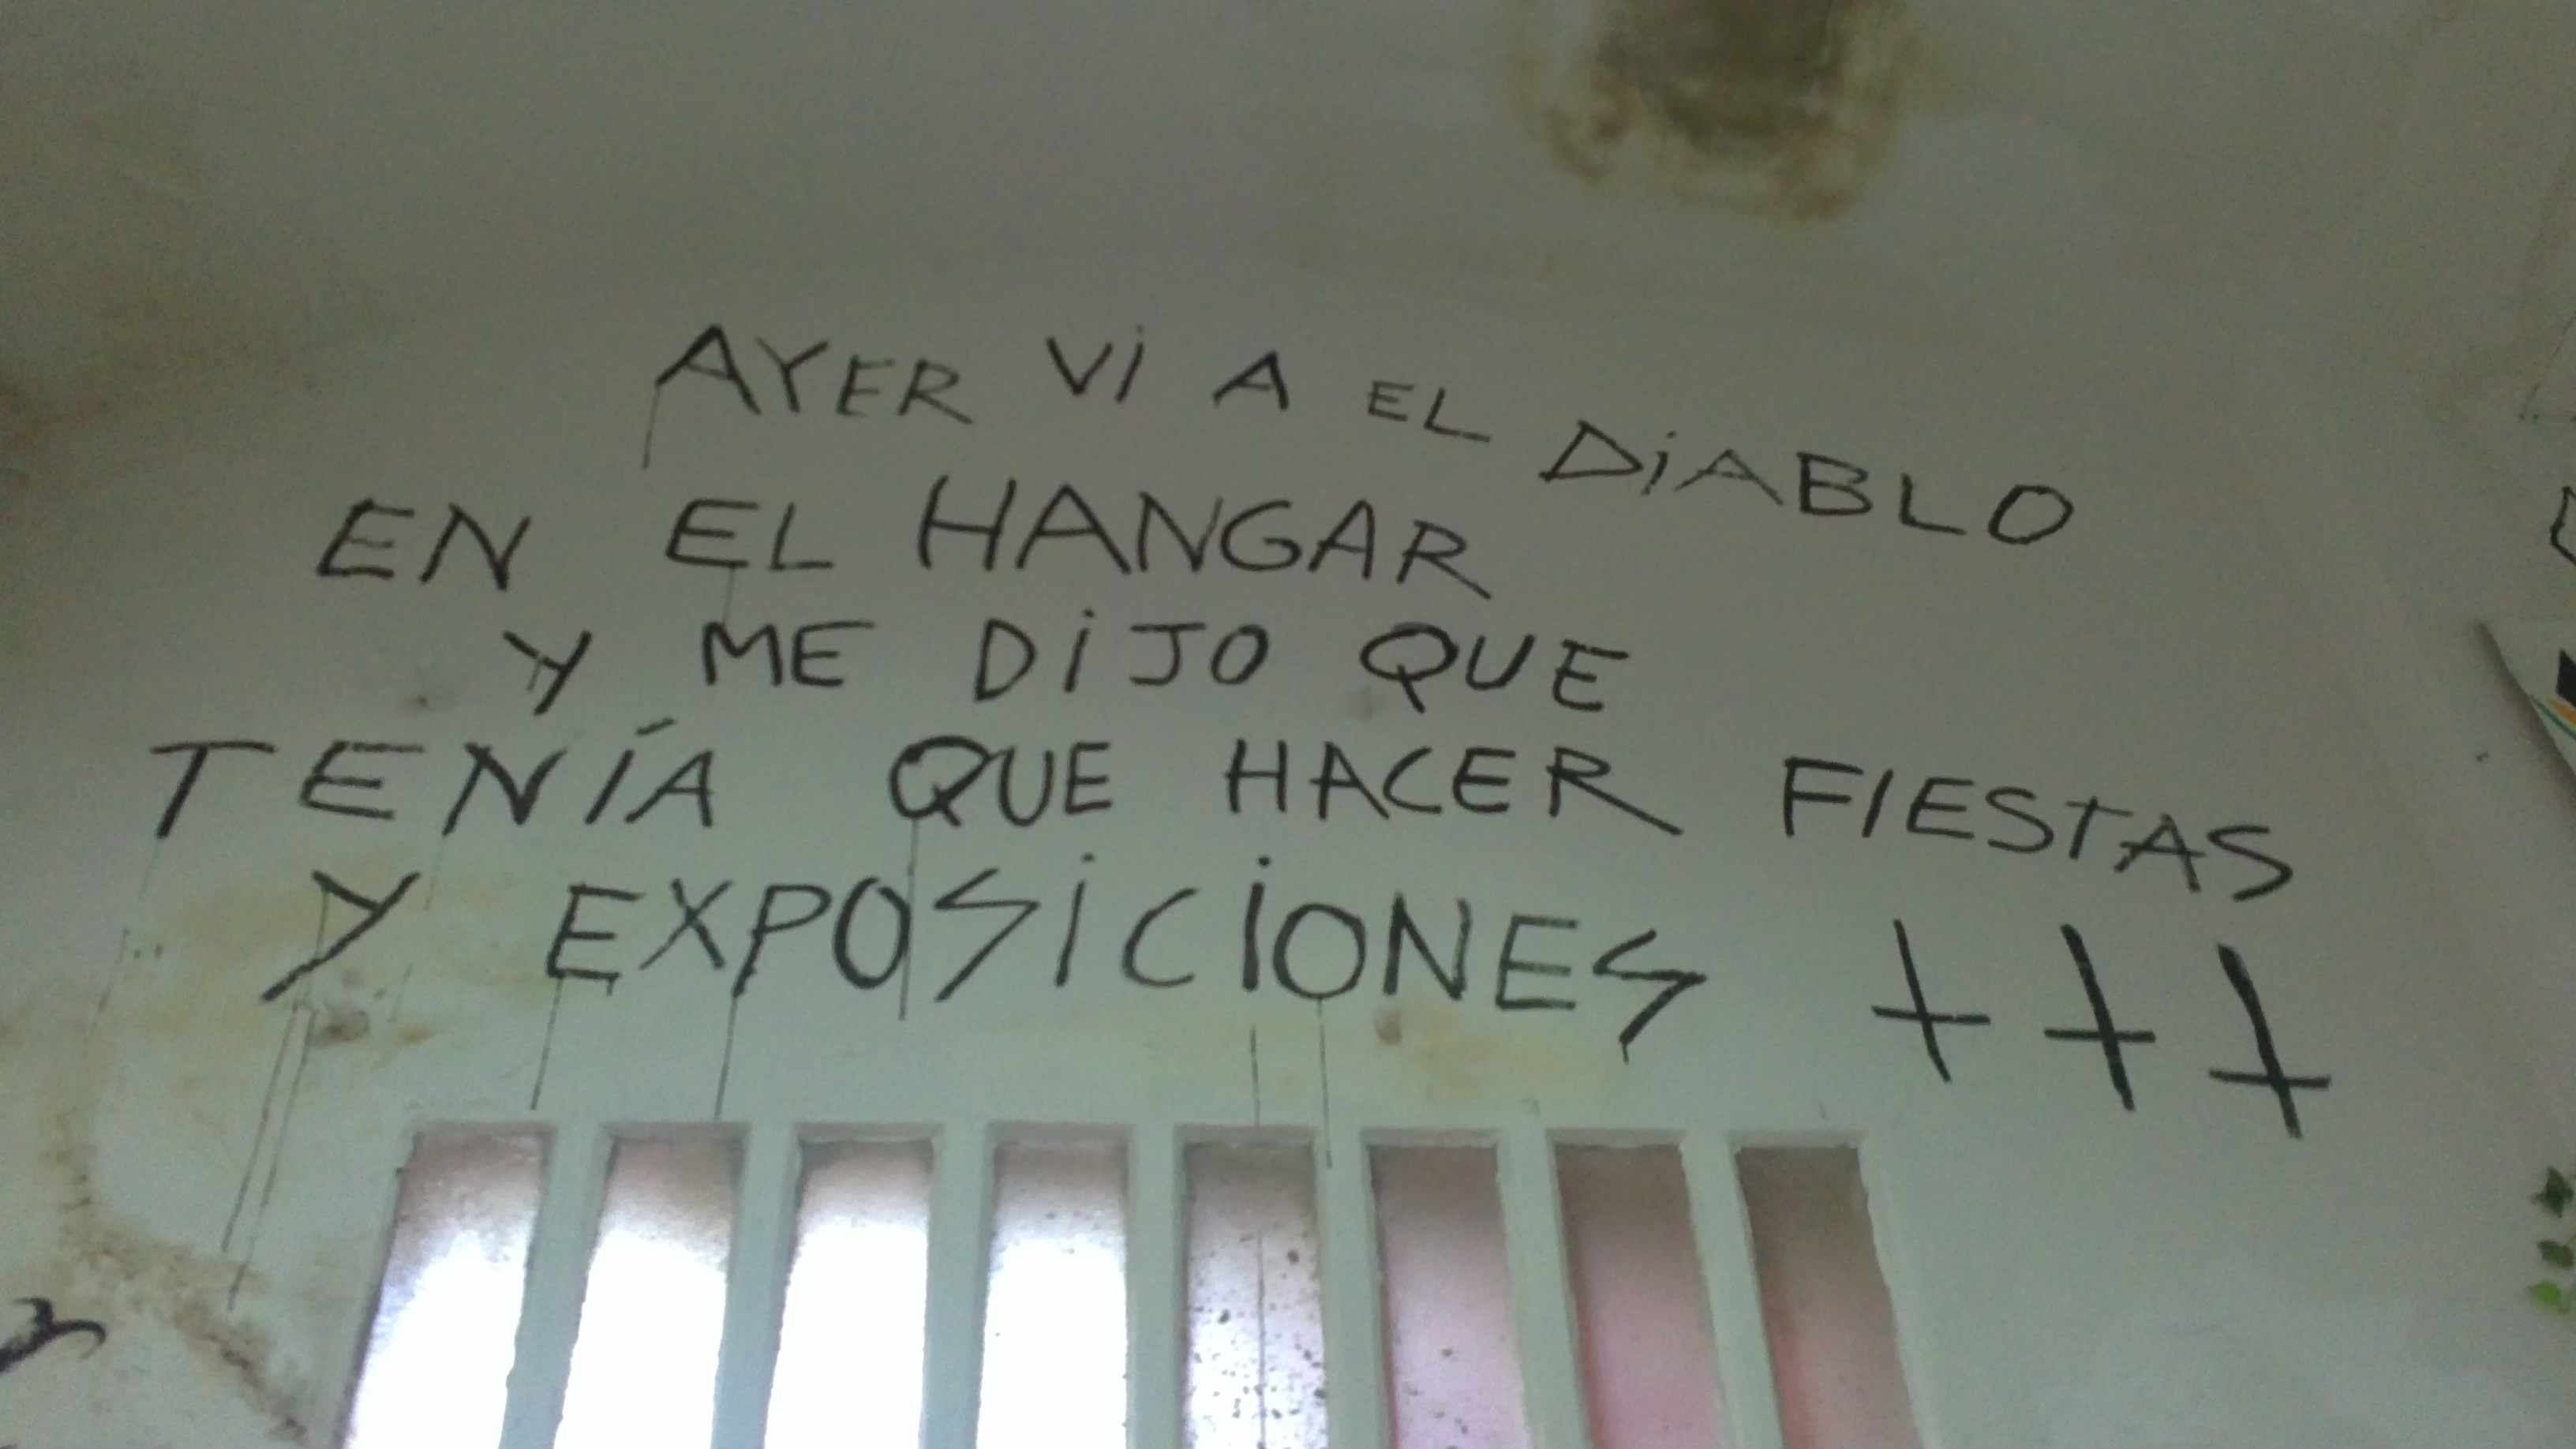 AYER Vi A EL DiABLO
EN EL HANGAR
Y ME DiJO QUE
TENÍA QUE HACER FIESTAS
Y EXPOSiCiONES